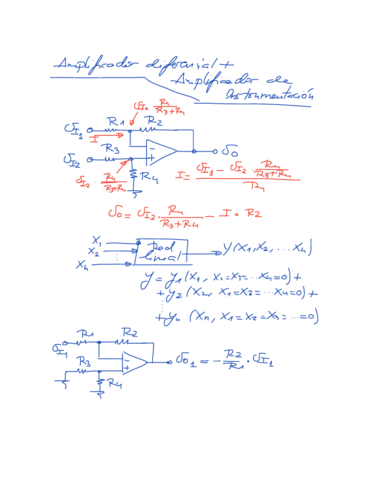 Amplificador diferencial +
Amplificador de
Instrumentación
υI2 · R4/(R3+R4)
R1 R2
υI1
I
R3
υI2
υO
υI2 · R4/(R3+R4)
R4
I = (υI1 − υI2 · R4/(R3+R4))/R1
υO = υI2 · R4/(R3+R4) − I · R2
X1
X2
X4
Red lineal
y(X1, X2, ... X4)
y = y1 (X1, X2=X3= ... X4=0) +
+ y2 (X2, X1=X3= ... X4=0) +
+ yn (Xn, X1=X2=X3= ... =0)
R1 R2
υI1
R3
R4
υO1 = − R2/R1 · υI1